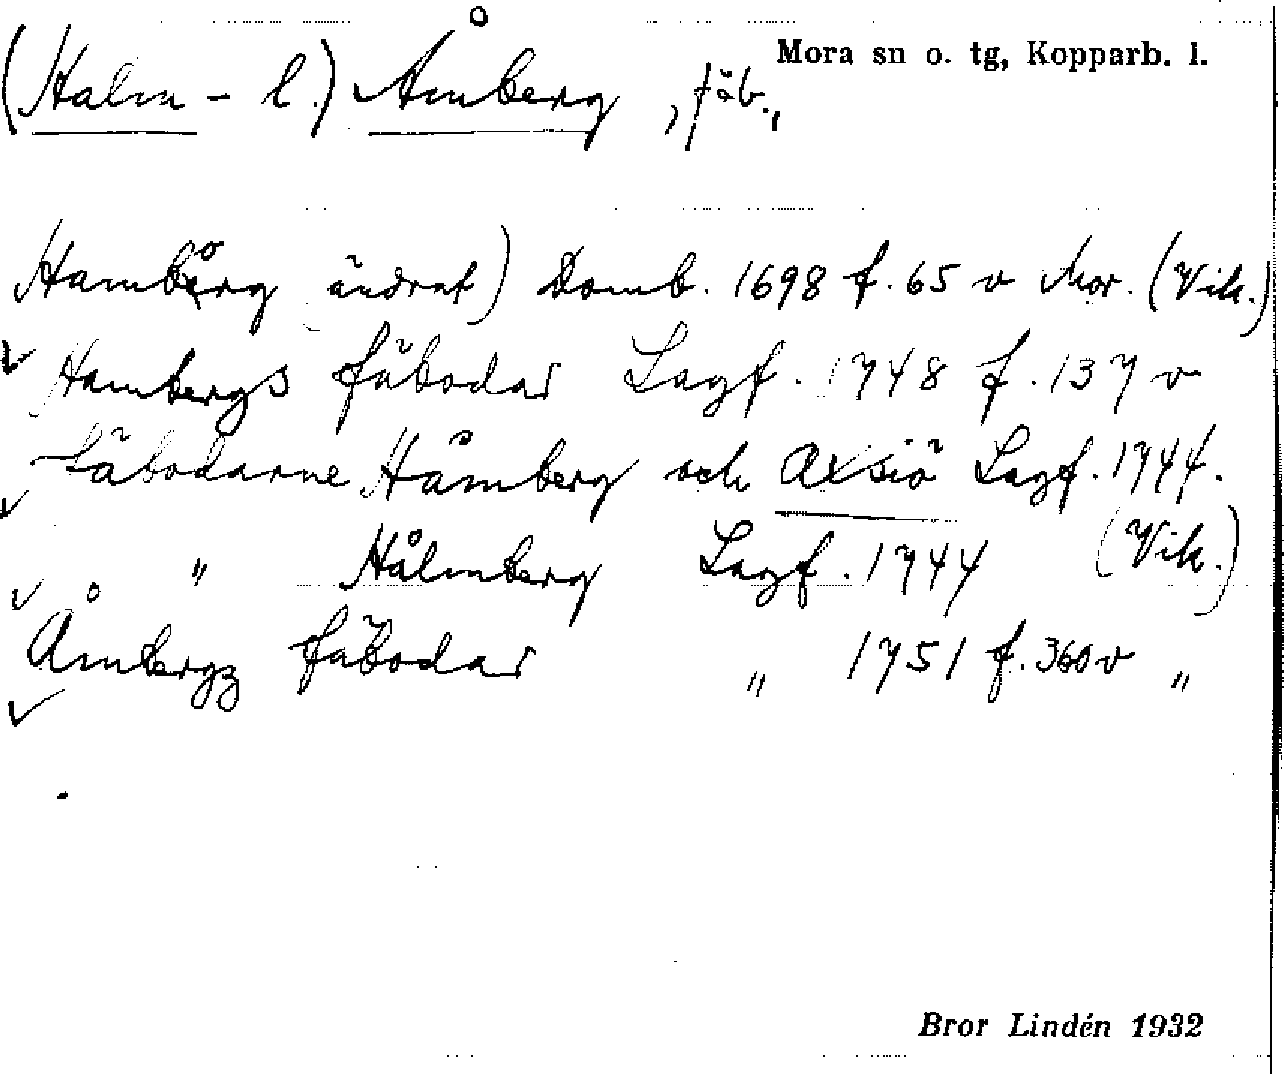 Mora sn o. tg, Kopparb. l.
(Halm- l.) Åmberg, fäb.,
Hamberg ändrat) Domb. 1698 f. 65 v Mor. (Vik.)
Hambergs fäbodar Lagf. 1748 f. 137 v
fäbodarne Håmberg och Axsiö Lagf. 1744.
" Hålmberg Lagf. 1744 (Vik.)
Åmbergz fäbodar " 1751 f. 360 v "
Bror Lindén 1932